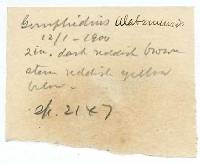 Gomphidius Alabamensis
12/1-1900
2in. dark reddish brown
stem reddish yellow
below.
Sp. 21 x 7